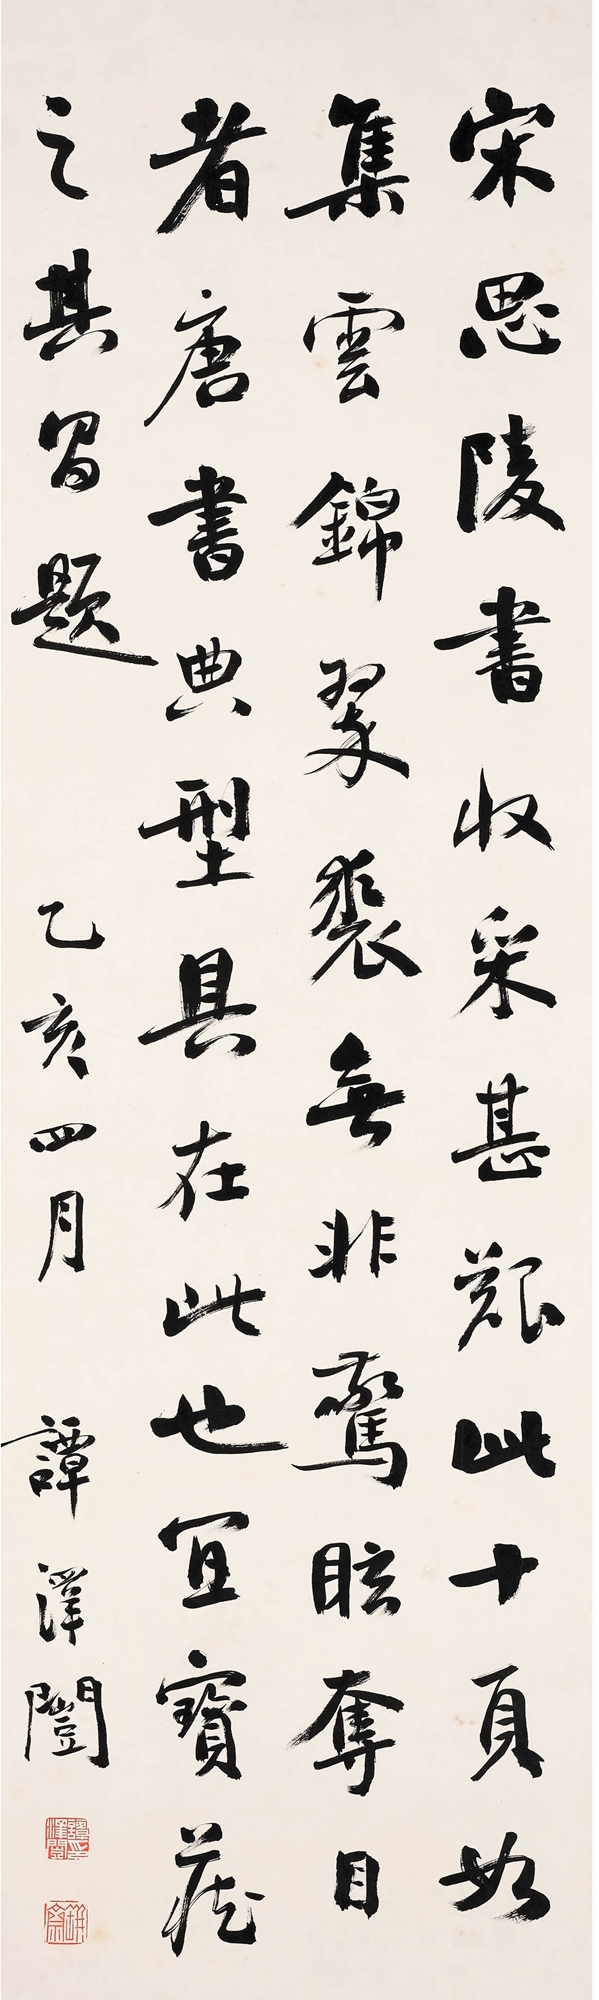 宋思陵書收采甚艱此十頁如
集雲錦翠裘無非驚眩奪目
者唐書典型具在此也宜寶藏
之其昌題
乙亥四月
譚澤闓
譚澤闓印